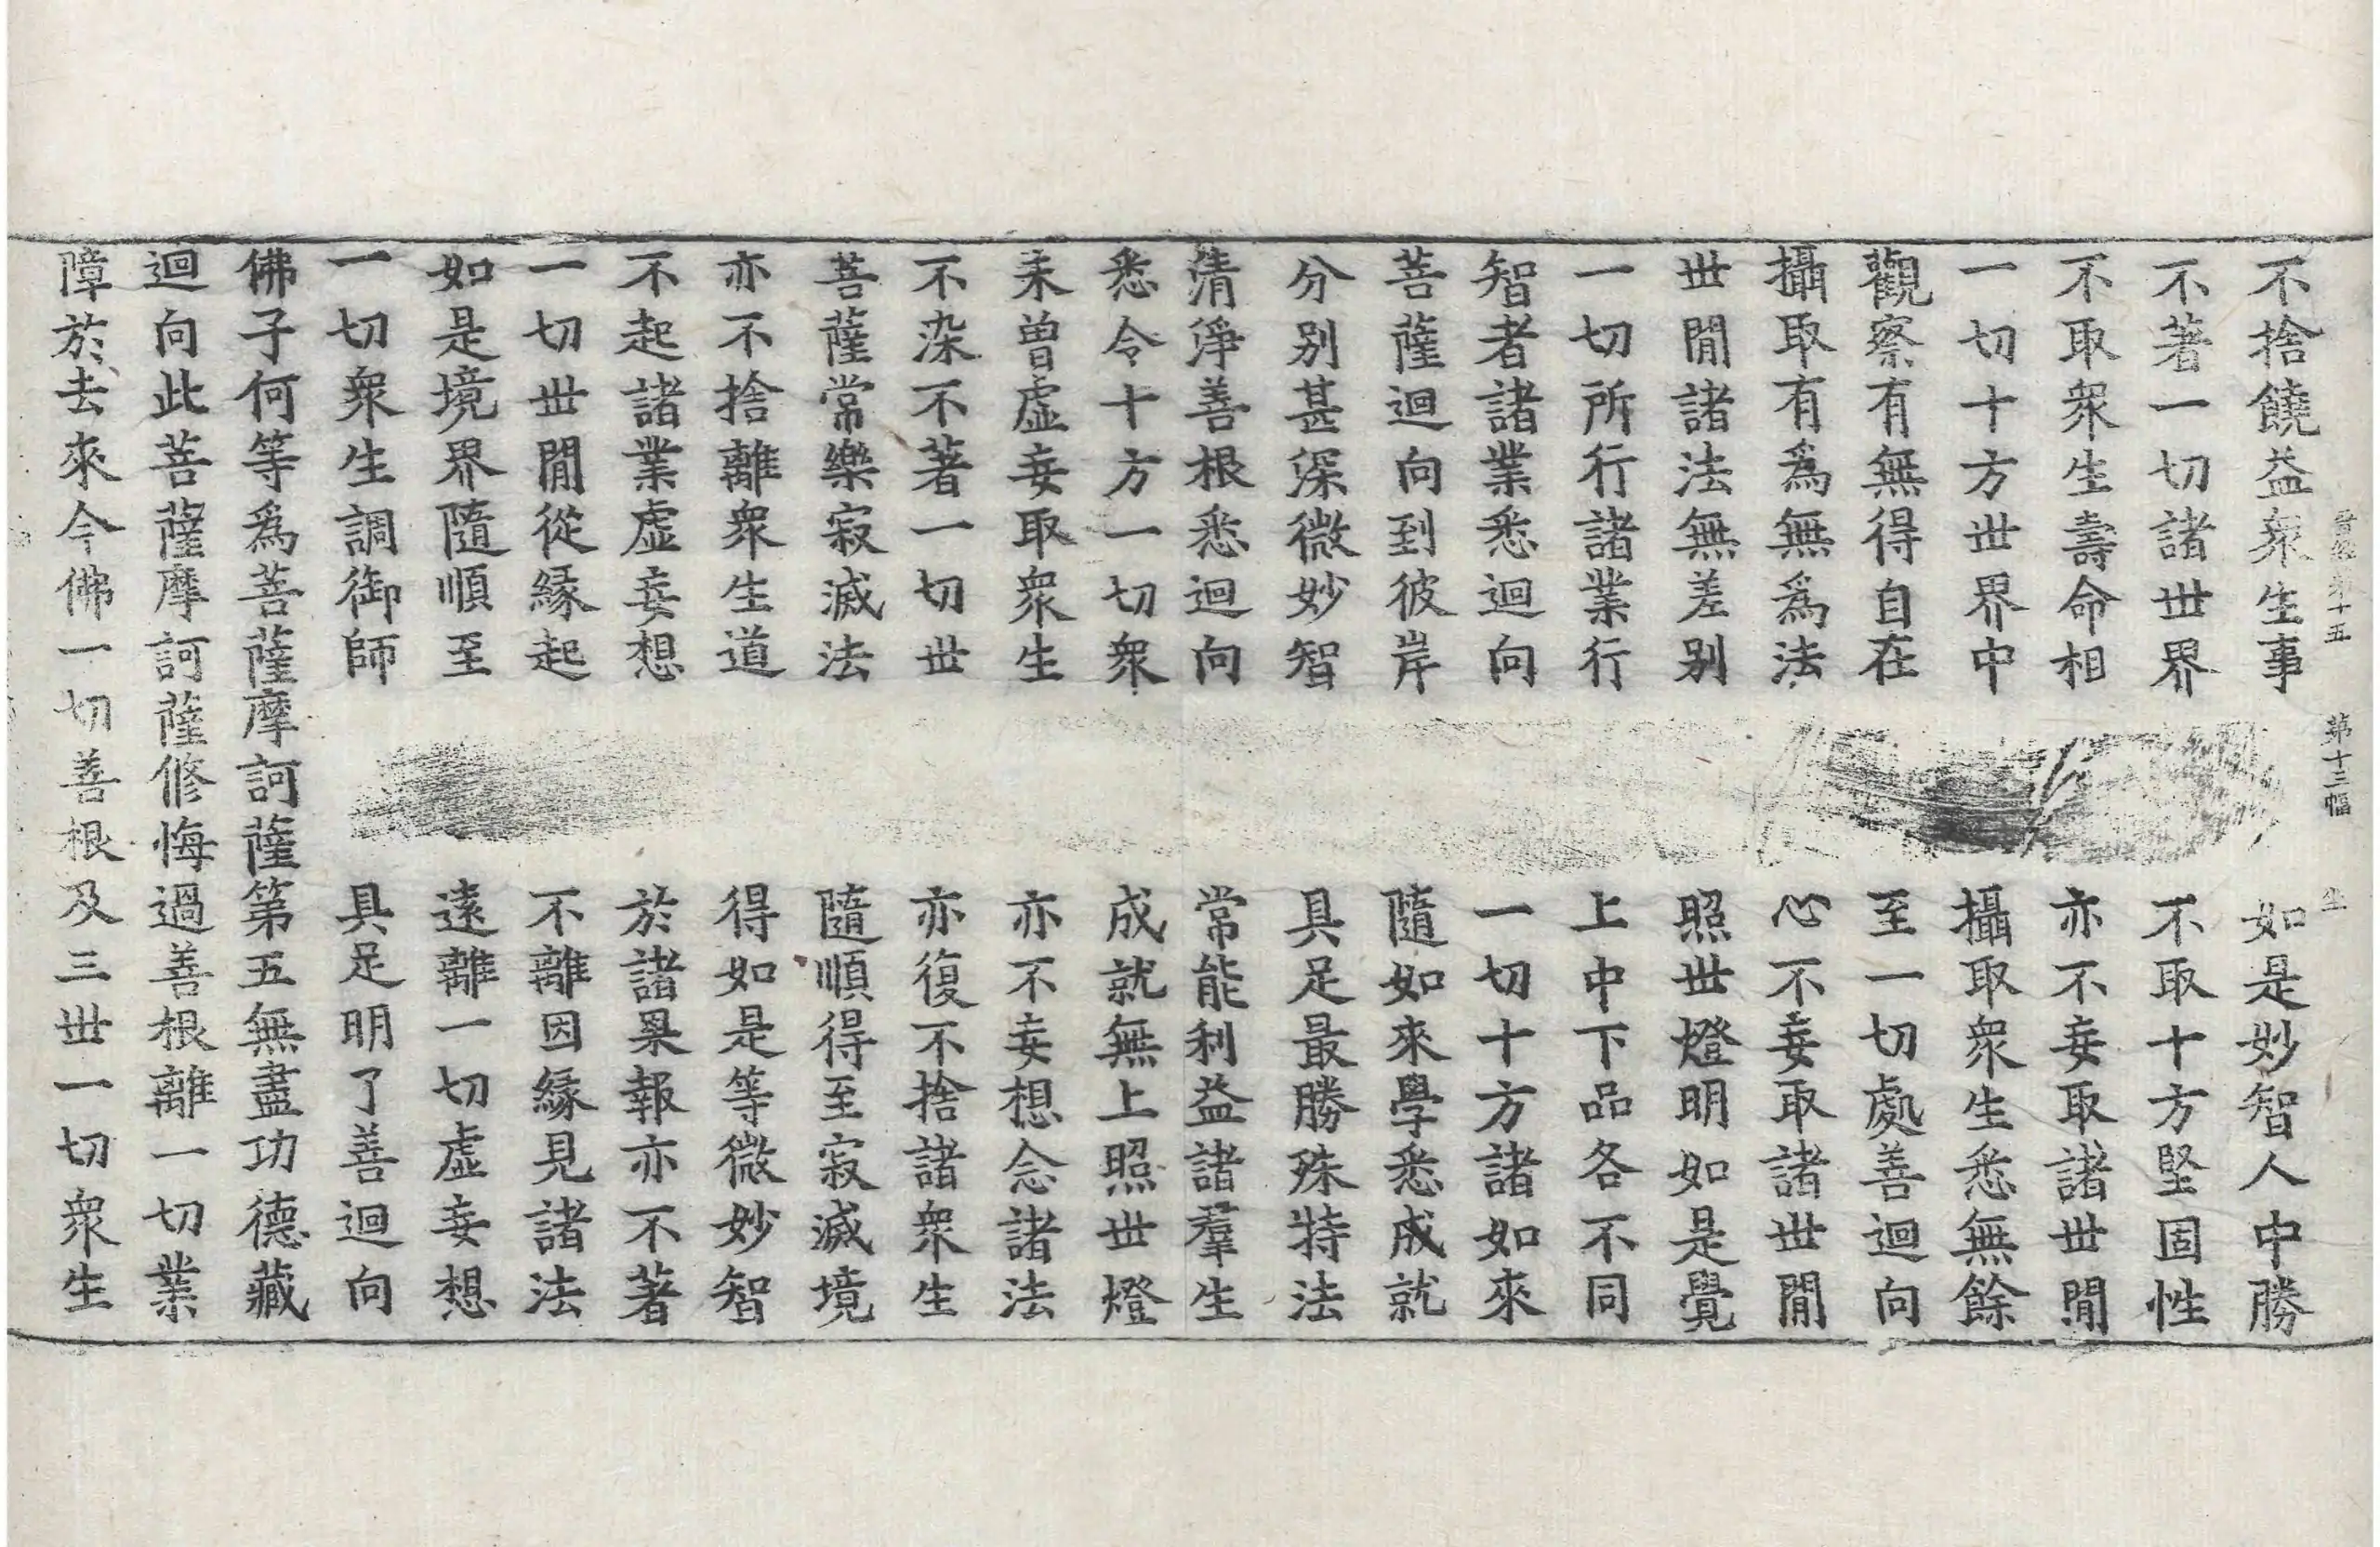 晉經第十五 第十三幅 坐
不捨饒益衆生事 如是妙智人中勝
不著一切諸世界 不取十方堅固性
不取衆生壽命相 亦不妄取諸世閒
一切十方世界中 攝取衆生悉無餘
觀察有無得自在 至一切處善迴向
攝取有爲無爲法 心不妄取諸世閒
世閒諸法無差别 照世燈明如是覺
一切所行諸業行 上中下品各不同
智者諸業悉迴向 一切十方諸如來
菩薩迴向到彼岸 隨如來學悉成就
分别甚深微妙智 具足最勝殊特法
清淨善根悉迴向 常能利益諸羣生
悉令十方一切衆 成就無上照世燈
未曾虚妄取衆生 亦不妄想念諸法
不染不著一切世 亦復不捨諸衆生
菩薩常樂寂滅法 隨順得至寂滅境
亦不捨離衆生道 得如是等微妙智
不起諸業虚妄想 於諸果報亦不著
一切世閒從緣起 不離因緣見諸法
如是境界隨順至 遠離一切虚妄想
一切衆生調御師 具足明了善迴向
佛子何等爲菩薩摩訶薩第五無盡功德藏
迴向此菩薩摩訶薩修悔過善根離一切業
障於去來今佛一切善根及三世一切衆生